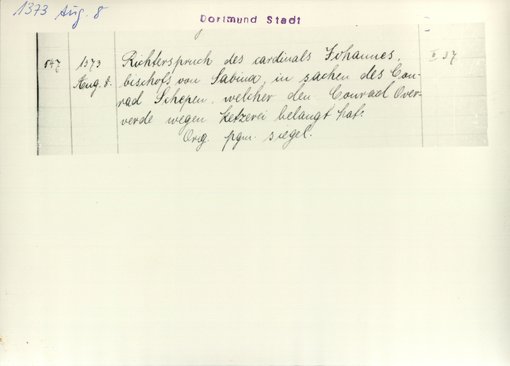 1373 Aug. 8
Dortmund Stadt
547 1373 Richterspruch des cardinals Johannes, II 37
Aug. 8. bischofs von Sabina, in sachen des Con-
rad Schepen, welcher den Conrad Over-
verde wegen ketzerei belangt hat.
Orig. pgm siegel.